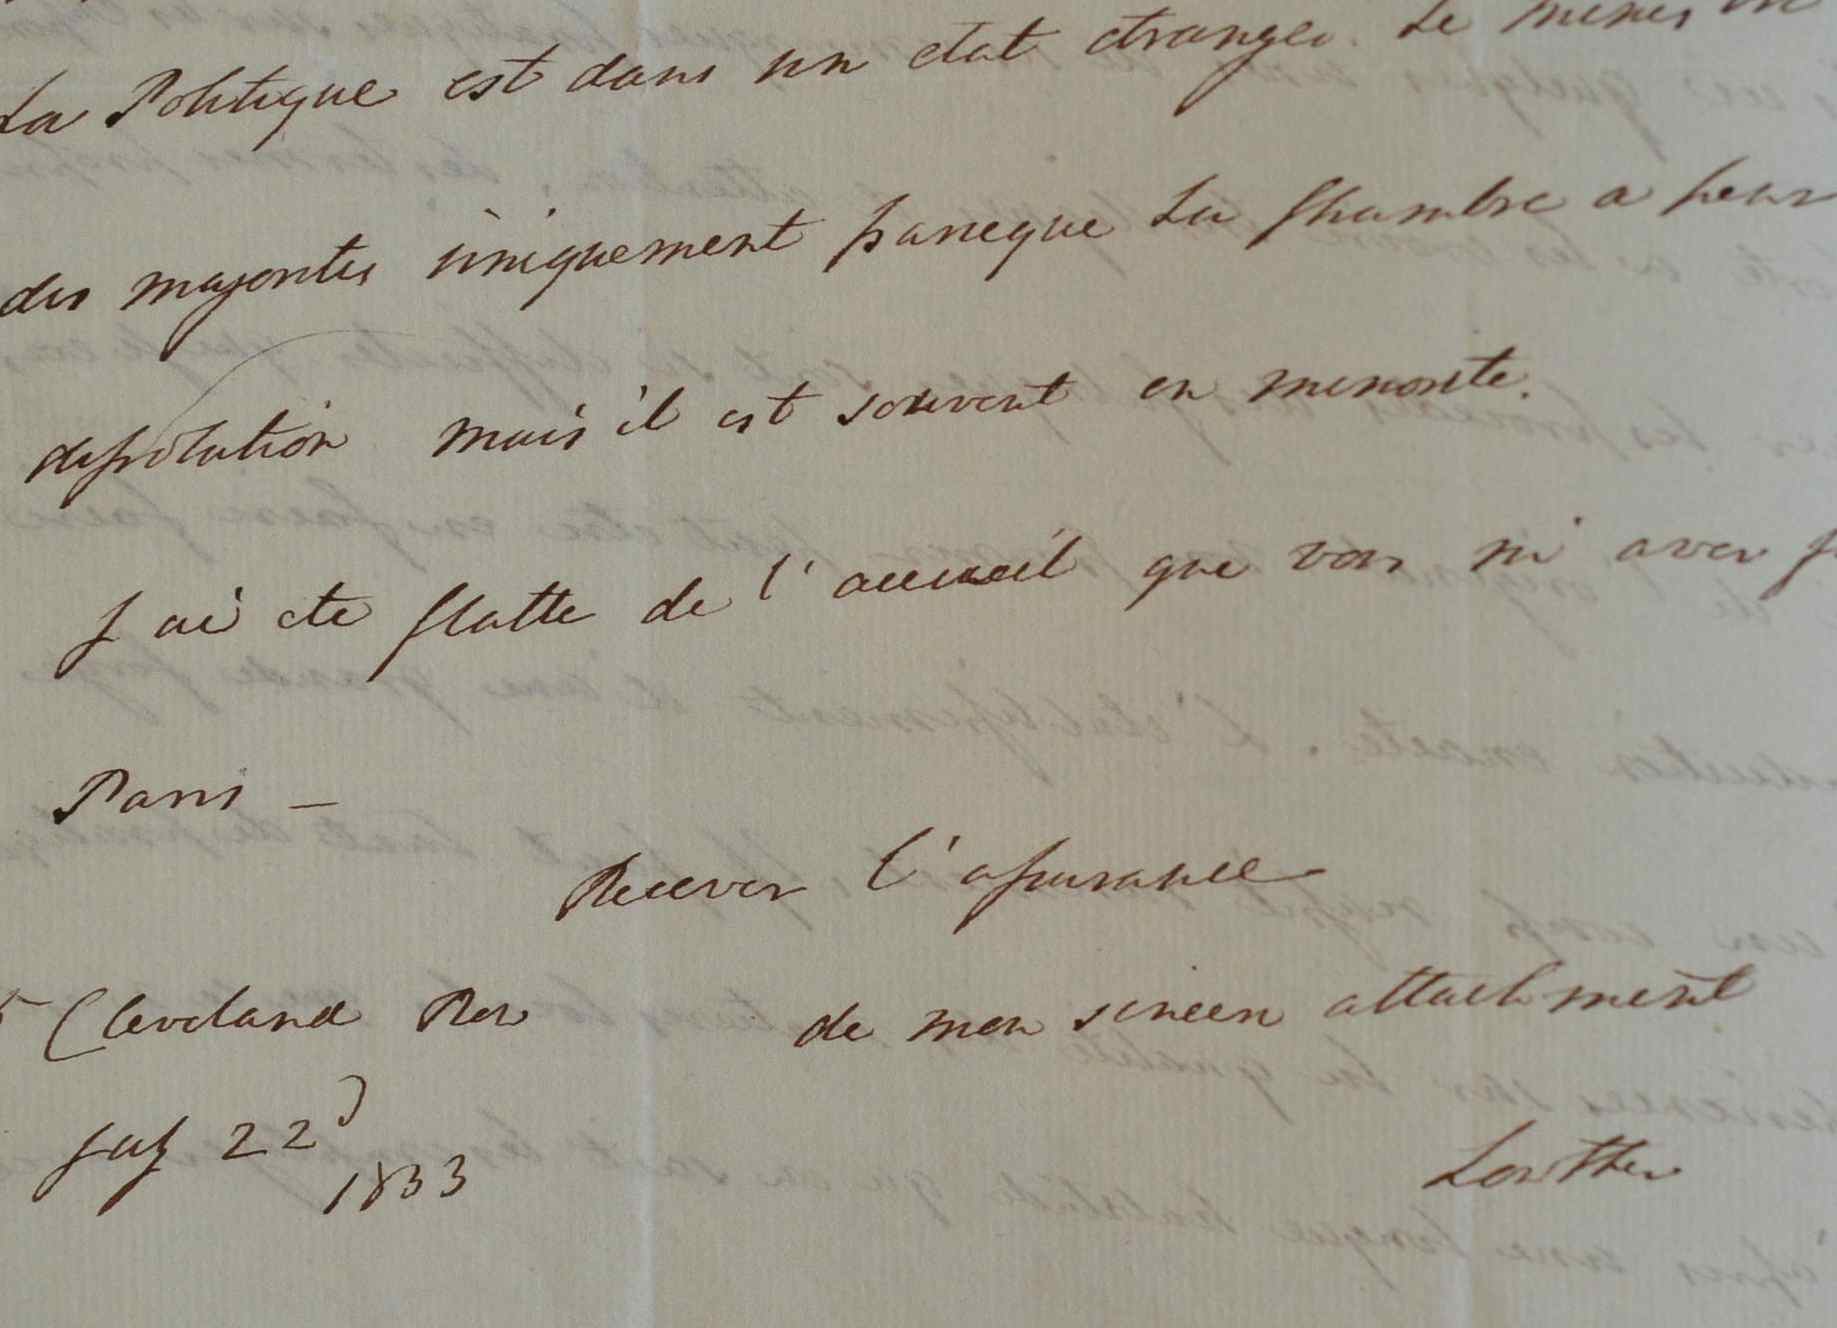 La Politique est dans un etat etranger. Le
des majorites uniquement parceque La Chambre a peur
dissolution mais il est souvent en minorite.
J ai ete flatte de l'accueil que vous m' avez
Paris –
Recevez l'assurance
Cleveland Row
de mon sincere attachment
July 22d
1833
Lowther